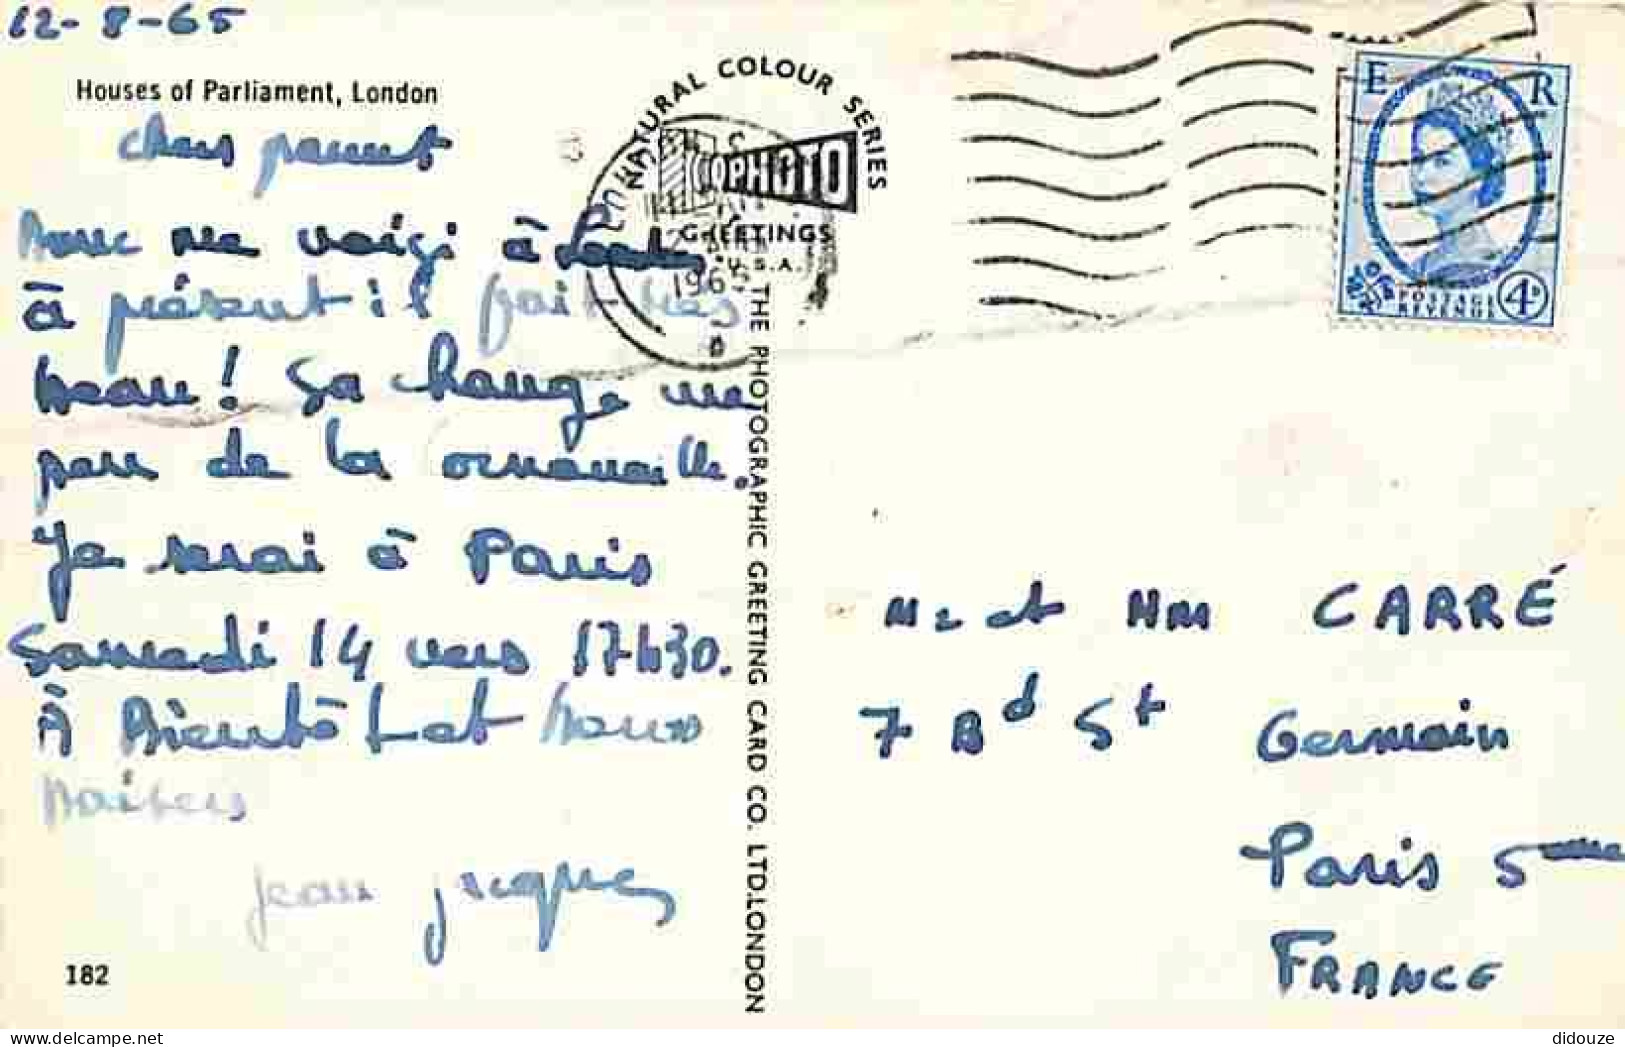 12-8-65
Houses of Parliament, London
chers parent
Donc me voiçi à Londres
à présent il fait très
beau! Sa change un
peu de la Cornouaille.
Je serai à Paris
Samedi 14 vers 17h30.
À Bientôt et bons
baisers
jean jacques
182
NATURAL COLOUR SERIES
PHOTO
GREETINGS
U.S.A.
1965
THE PHOTOGRAPHIC GREETING CARD CO. LTD. LONDON
E R
POSTAGE
REVENUE
4D
Mr et Mm CARRÉ
7 Bd St Germain
Paris 5eme
FRANCE
didouze